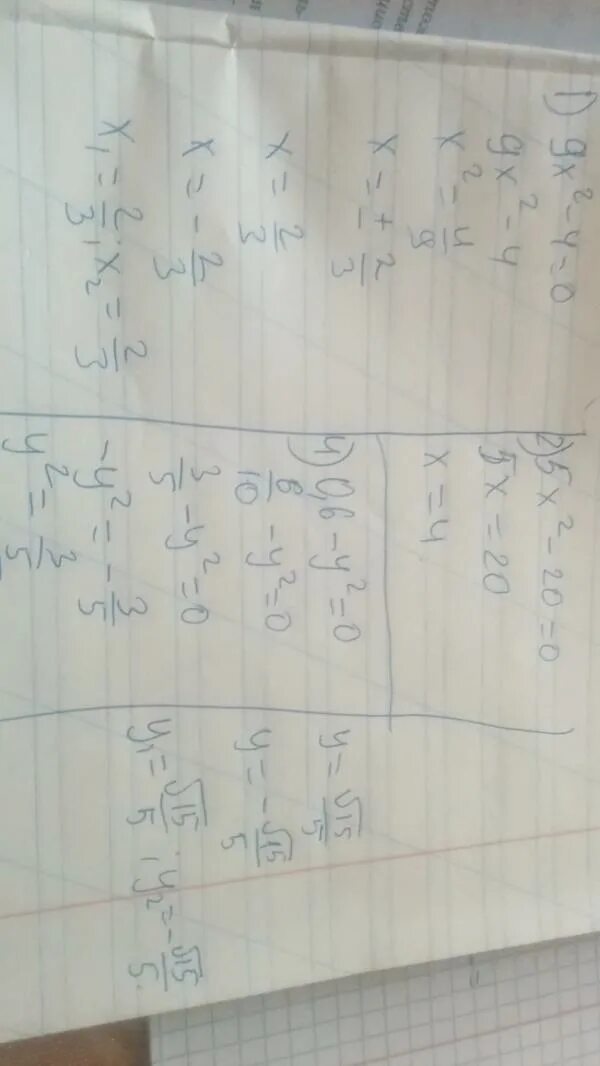 1) 9x² - 4 = 0
9x² - 4
x² = 4/9
x = ± 2/3
x = 2/3
x = - 2/3
x₁ = 2/3 ; x₂ = 2/3
2) 5x² - 20 = 0
5x = 20
x = 4
4) 0,6 - y² = 0
6/10 - y² = 0
3/5 - y² = 0
-y² = - 3/5
y² = 3/5
y = √15/5
y = - √15/5
y₁ = √15/5 ; y₂ = - √15/5